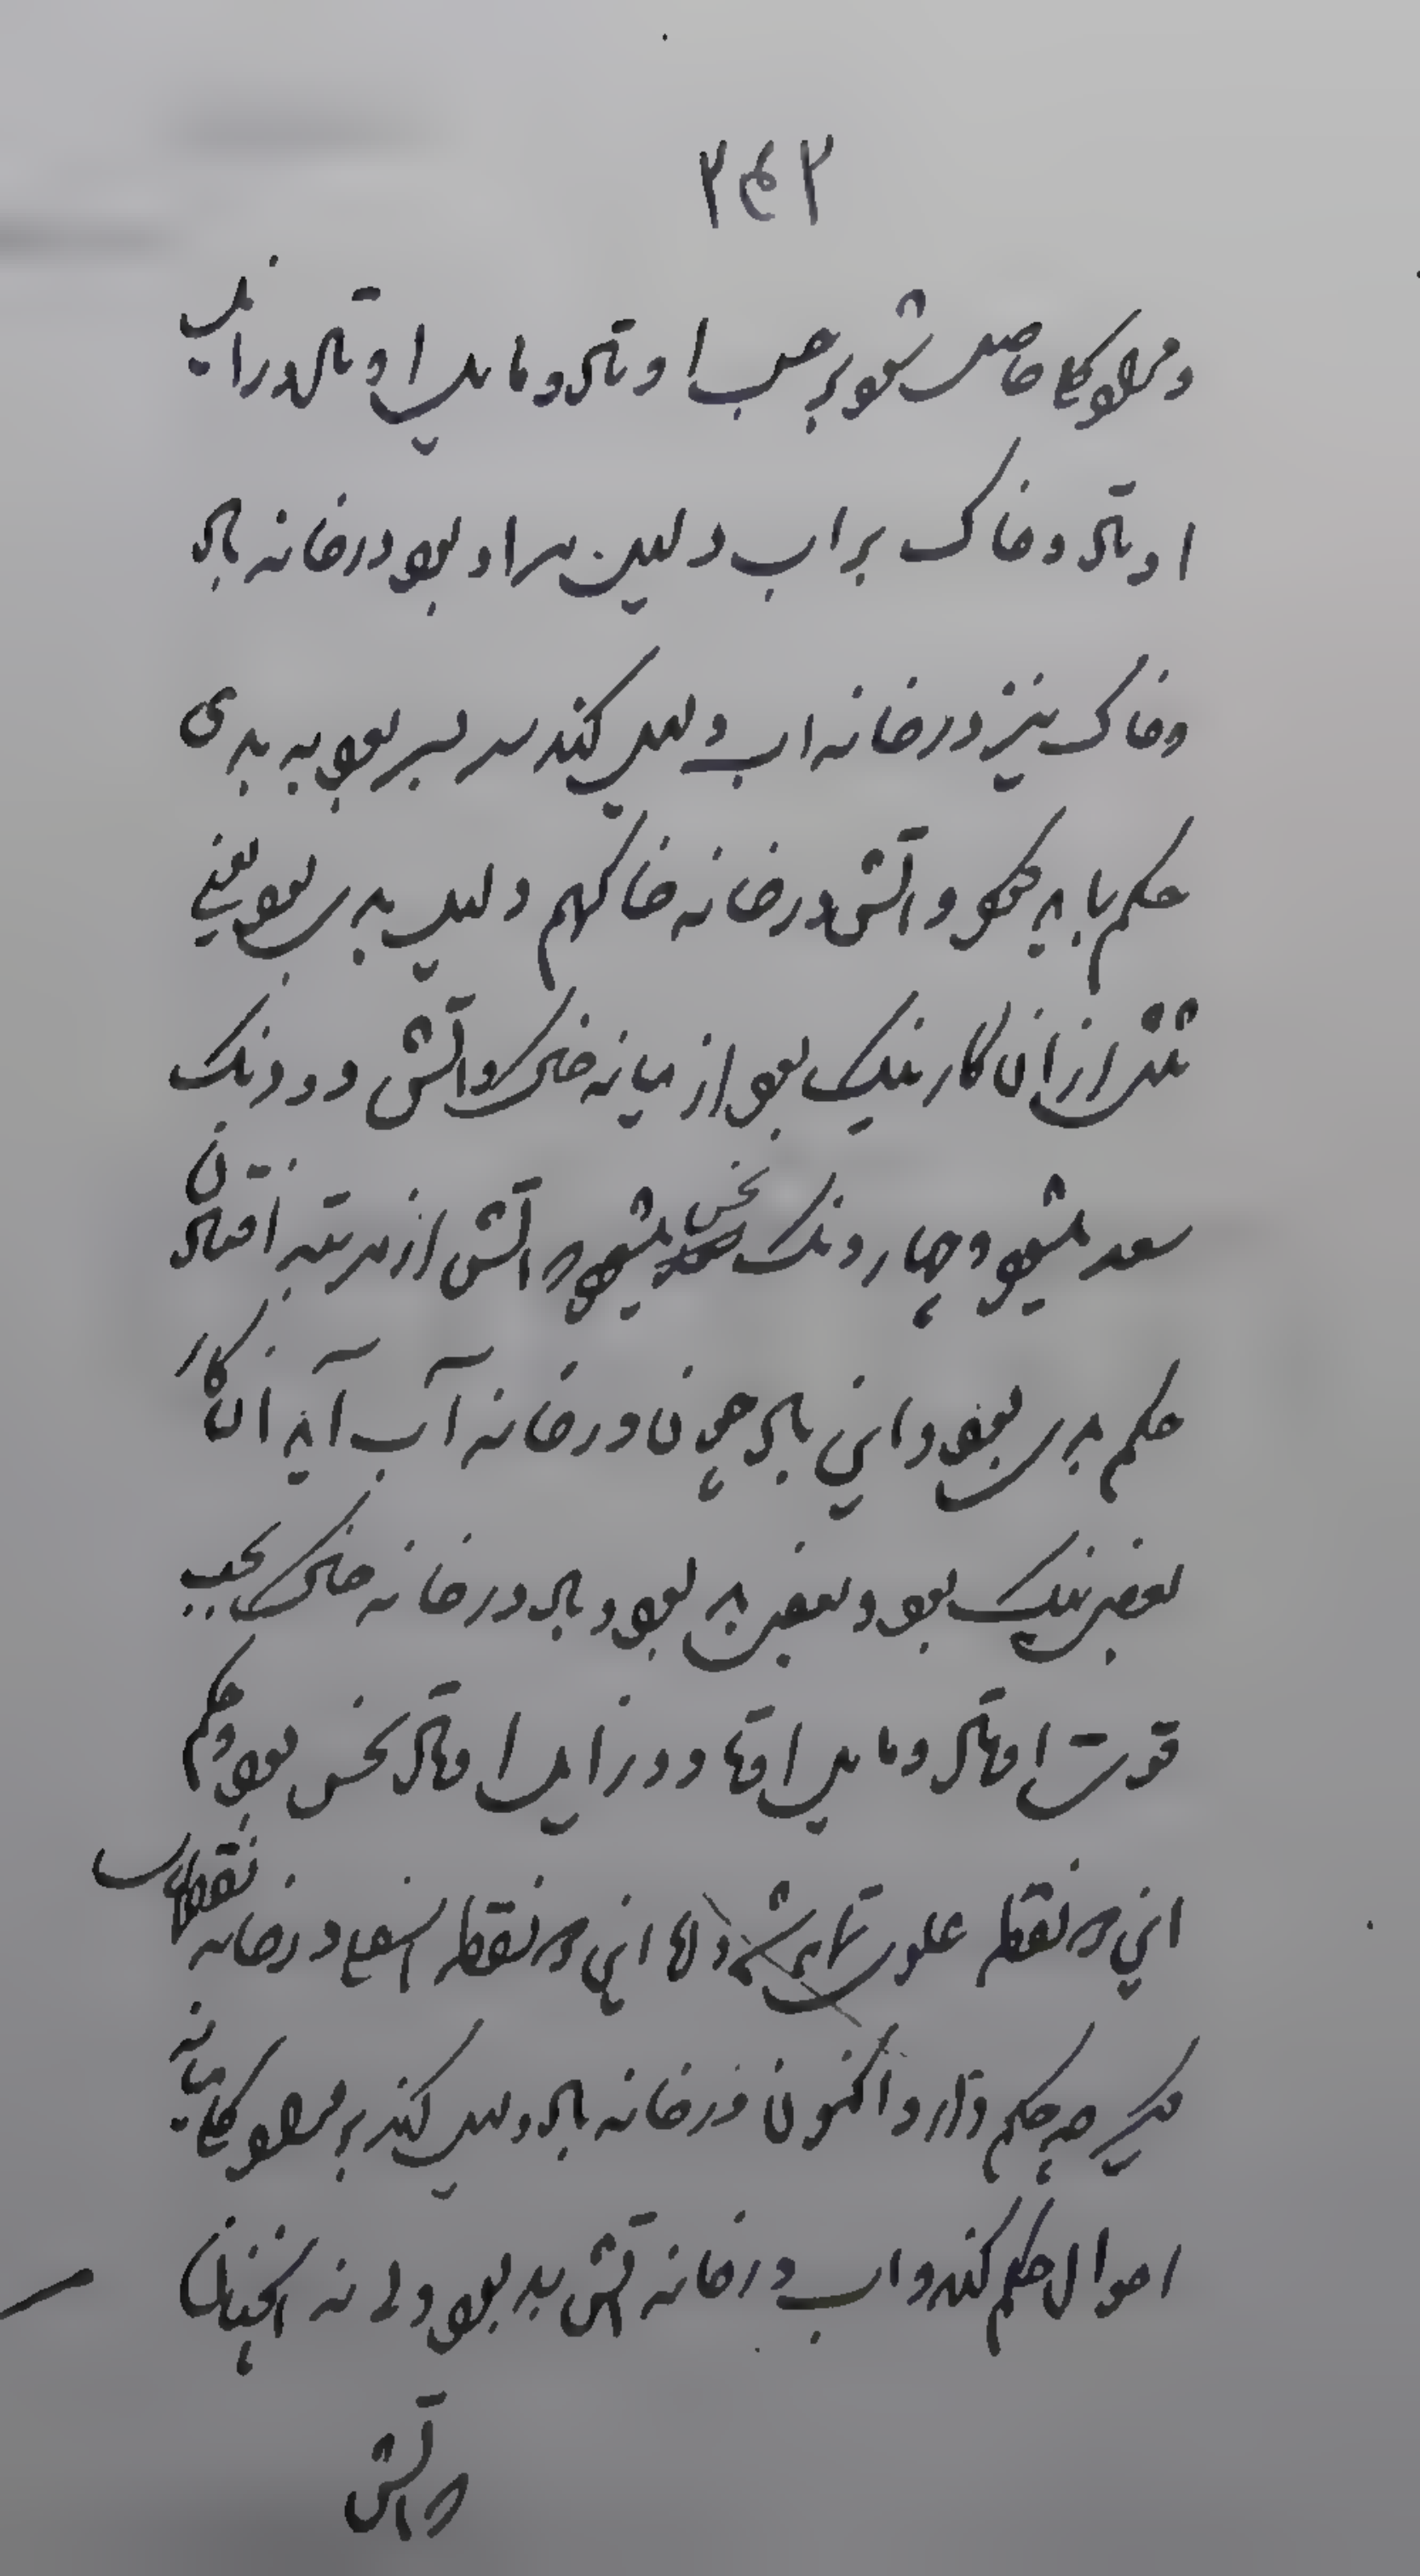 ۲۴۲
و مراد کلی حاصل شود بر حسب اوتاد و مایل اوتاد و زایل
اوتاد و خاک بر آب دلیل مراد بود در خانه باد
و خاک نیز در خانه آب دلیل کند بود به بدی
حکم باید کرد و آتش در خانه خاک هم دلیل بدی بود یعنی
از آن کار نیک بود از میانه خاک و آتش دو دنک
سعد میشود و چهار دنک نحس میشود که آتش از مرتبه افتادن
حکم بدی بود و این باد چون در خانه آب آید آن کار
بعضی نیک بود و بعضی بد بود و باد در خانه خاک بحسب
قوت اوتاد و مایل اوتاد و زایل اوتاد نحس بود و حکم
این که نقطه علوی این که نقطه اسفل در خانه نقطهای
دیگر چه حکم دارد اکنون در خانه باد دلیل کند بر مراد کلی میانه
احوال حکم کند و آب در خانه آتش بد بود ولی نه آنچنان
که آتش